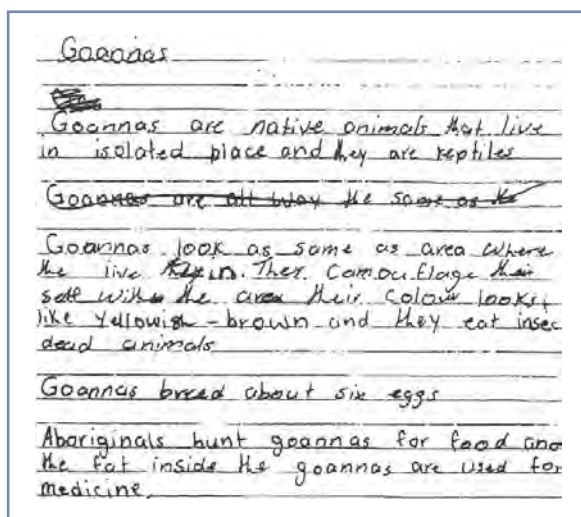 Goannas
Goannas are native animals that live
in isolated place and they are reptiles
Goannas are all way the same as the
Goannas look as same as area where
the live in. Ther. Camouflage their
self with the area their colour looks
like yellowish - brown and they eat insec
dead animals
Goannas breed about six eggs
Aboriginals hunt goannas for food and
the fat inside the goannas are used for
medicine.